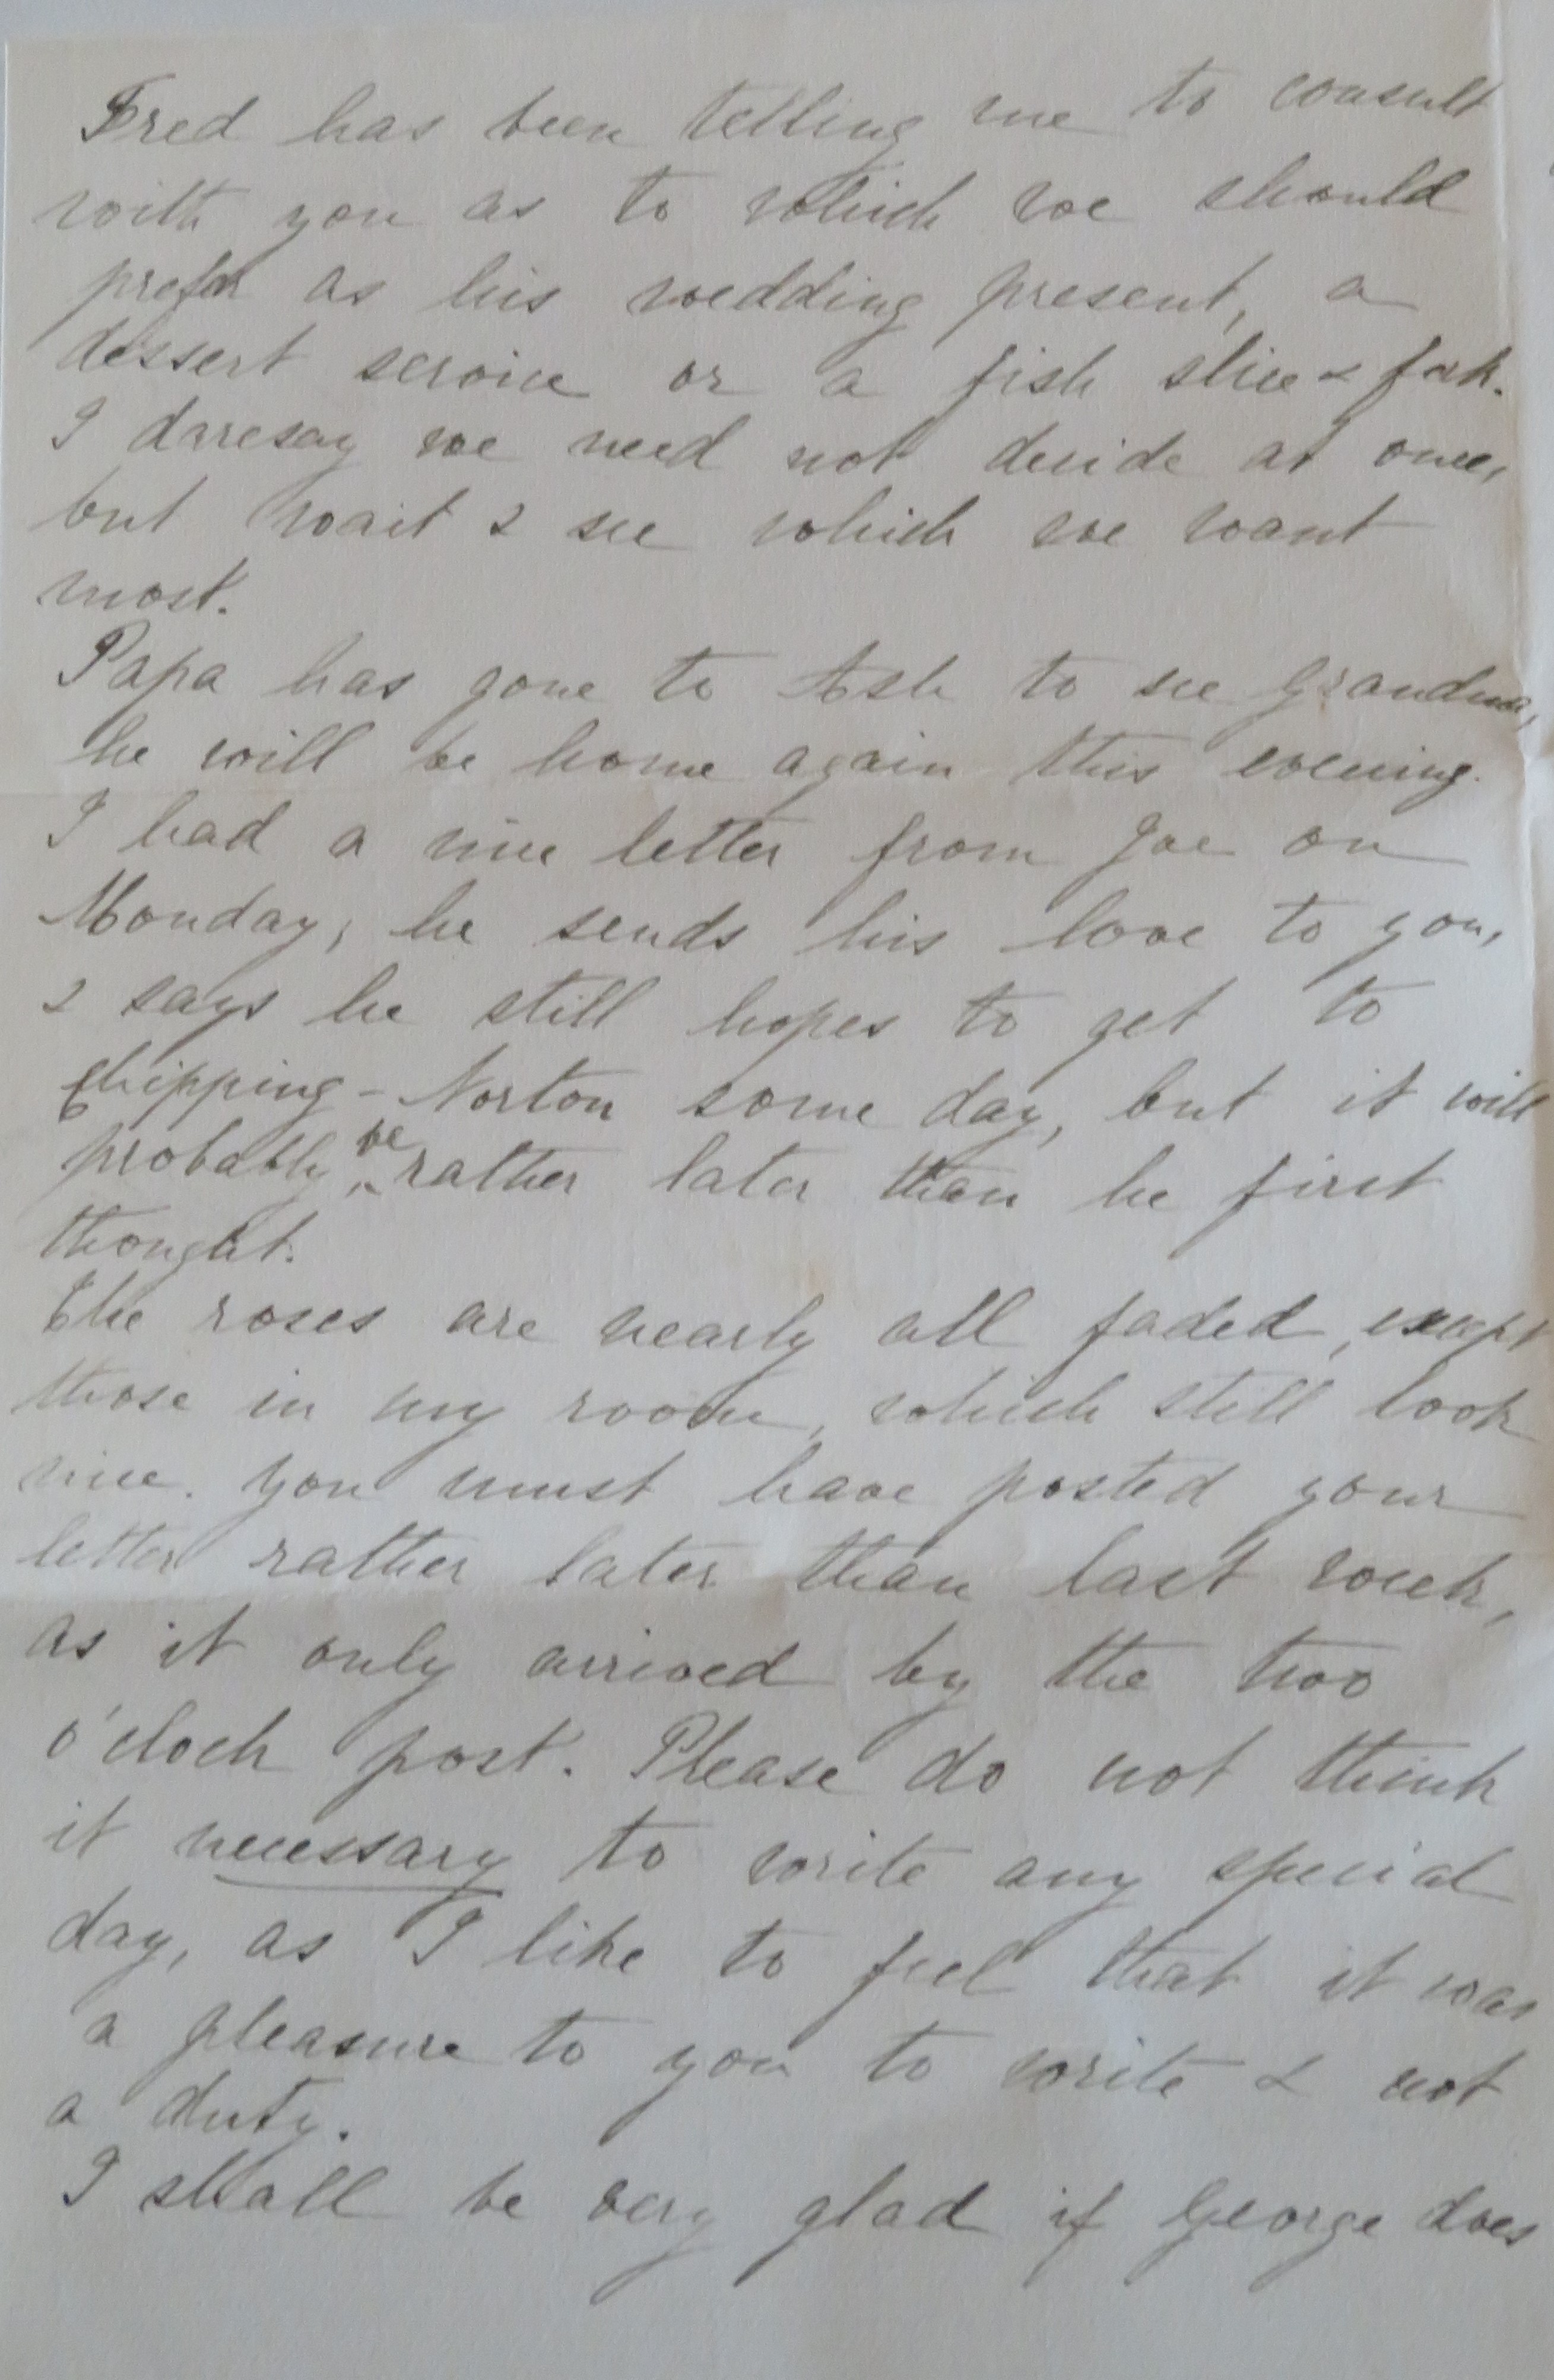 Fred has been telling me to consult
with you as to which we should
prefer as his wedding present, a
dessert service or a fish slice & fork.
I daresay we need not decide at once,
but wait & see which we want
most.
Papa has gone to Ash to see Grandma,
he will be home again this evening.
I had a nice letter from Joe on
Monday, he sends his love to you,
& says he still hopes to get to
Chipping-Norton some day, but it will
probably be rather later than he first
thought.
The roses are nearly all faded, except
those in my room, which still look
nice. You must have posted your
letter rather later than last week,
as it only arrived by the two
o'clock post. Please do not think
it necessary to write any special
day, as I like to feel that it was
a pleasure to you to write & not
a duty.
I shall be very glad if George does